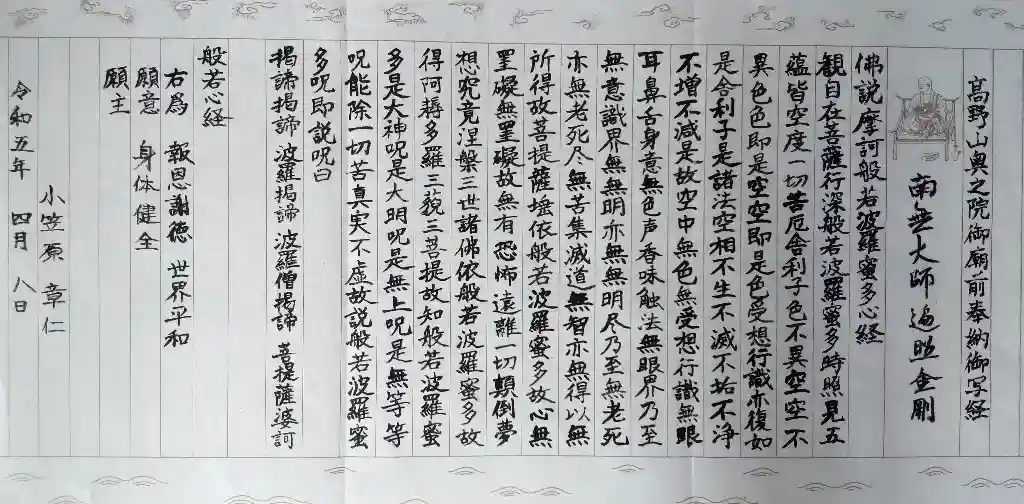 高野山奥之院御廟前奉納御写経
南無大師遍照金剛
佛説摩訶般若波羅蜜多心経
観自在菩薩行深般若波羅蜜多時照見五
蘊皆空度一切苦厄舎利子色不異空空不
異色色即是空空即是色受想行識亦復如
是舎利子是諸法空相不生不滅不垢不浄
不増不減是故空中無色無受想行識無眼
耳鼻舌身意無色声香味触法無眼界乃至
無意識界無無明亦無無明尽乃至無老死
亦無老死尽無苦集滅道無智亦無得以無
所得故菩提薩埵依般若波羅蜜多故心無
罣礙無罣礙故無有恐怖遠離一切顛倒夢
想究竟涅槃三世諸佛依般若波羅蜜多故
得阿耨多羅三藐三菩提故知般若波羅蜜
多是大神呪是大明呪是無上呪是無等等
呪能除一切苦真実不虚故説般若波羅蜜
多呪即説呪曰
揭諦揭諦 波羅揭諦 波羅僧揭諦 菩提薩婆訶
般若心経
右為 報恩謝徳 世界平和
願意 身体健全
願主
小笠原 章仁
令和五年 四月 八日